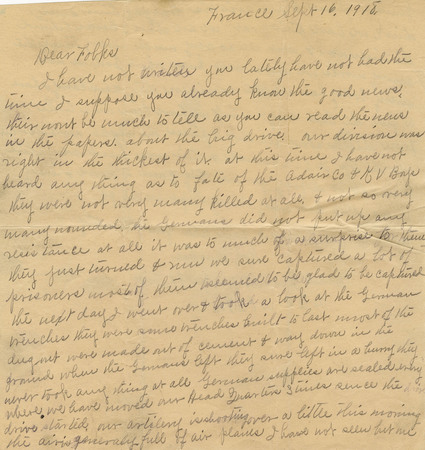 France Sept 16, 1918
Dear Folks
I have not writen you lately have not had the
time I suppose you already know the good news,
this wont be much to tell as you can read the news
in the papers. about the big drive. our division was
right in the thickest of it. at this time I have not
heard any thing as to fate of the Adair Co & K V Boys
they were not very many killed at all. & not so very
many wounded, the Germans did not put up any
resistance at all it was to much of a surprise to them
they just turned & run we sure captured a lot of
prisoners most of them seemed to be glad to be captured
the next day I went over & took a look at the German
trenches they were some trenches built to last most of the
dug out were made out of cement & way down in the
ground when the Germans left they sure left in a hurry they
never took any thing at all German supplies are scaled every
where, we have moved our Head Quarters 3 times since the
drive started, our artilery is shooting over a little this morning
the air is generally full of air planes I have not seen but one